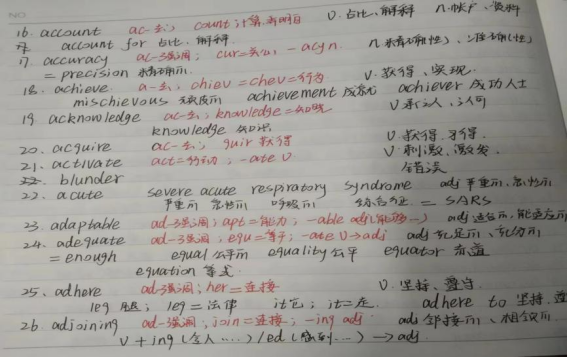 NO
16. account ac-去; count 计算
account for 占比、解释
v. 占比、解释 n. 帐户
17. accuracy ac-强调; cur=关心 -acy n.
= precision 准确
18. achieve a-去; chiev=chev=行为 v. 获得、实现
mischievous achievement 成就 achiever 成功人士
19. acknowledge ac-去; knowledge=知晓 v. 承认、认可
knowledge 知识
20. acquire ac-去; quir 获得 v. 获得
21. activate act=行动; -ate v v. 刺激、激发
blunder 错误
22. acute severe acute respiratory syndrome adj 严重
= SARS
23. adaptable ad-强调; apt=能力; -able adj(能够…) adj
24. adequate ad-强调; equ=等于; -ate v→adj adj
= enough equal equality 公平 equator 赤道
equation 等式
25. adhere ad-强调; her=连接 v. 坚持、遵守
leg 腿; leg=法律 it它; it=走 adhere to 坚持
26. adjoining ad-强调; join=连接; -ing adj adj
v+ing(令人…)/ed(感到…)→adj